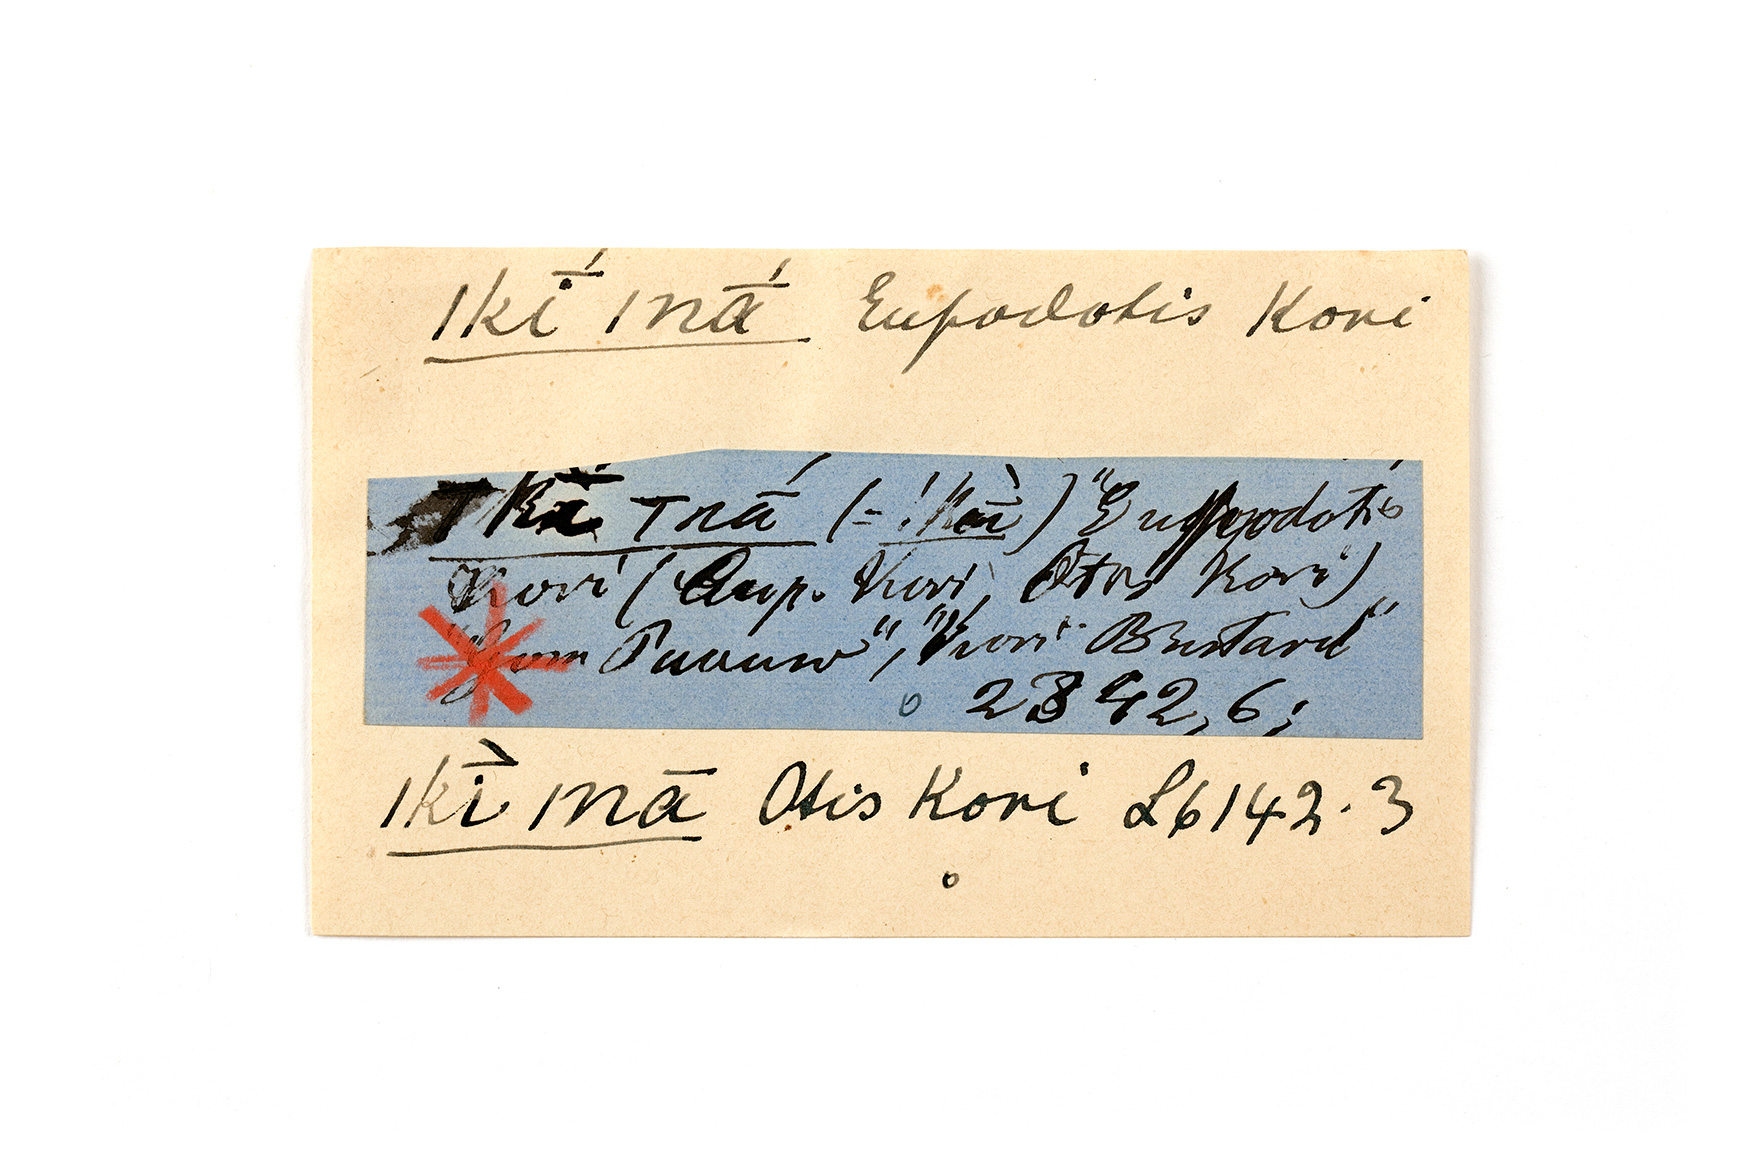 |kī́ |nā́ Eupodotis Kori
|kā̀ |nā́ (= !kāù) "Eupodotis
Kori (Eup. Kori, Otis Kori)
"Gom Paauw", "Kori Bustard"
2342, 6;
|kī̀ |nā Otis Kori L6142.3